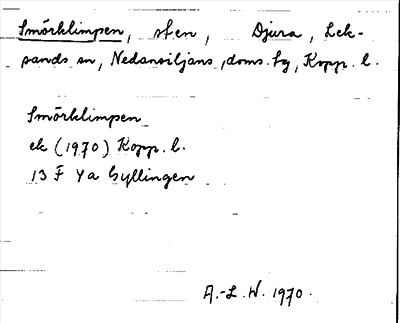 Smörklimpen, sten, Djura, Lek-
sands sn, Nedansiljans doms.hg, Kopp. l.
Smörklimpen
ek (1970) Kopp. l.
13 F 4a Gyllingen
A.-L. W. 1970.